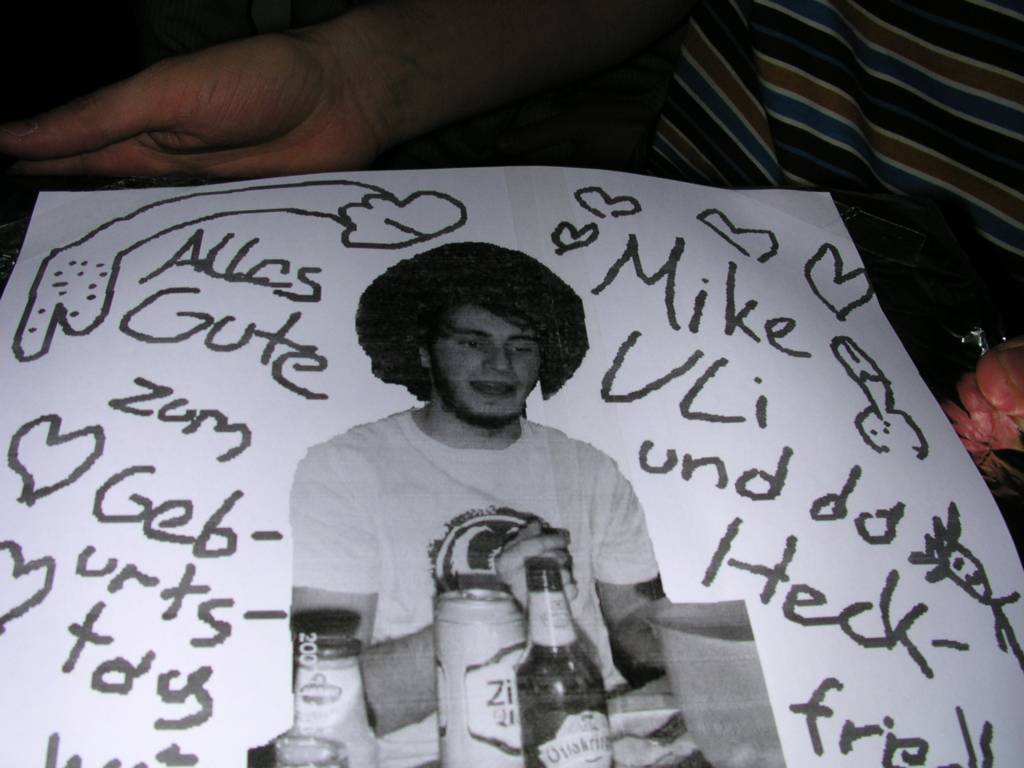 Alles
Gute
zum
Geb-
urts-
tag
Mike
ULi
und da
Heck-
200
Zi